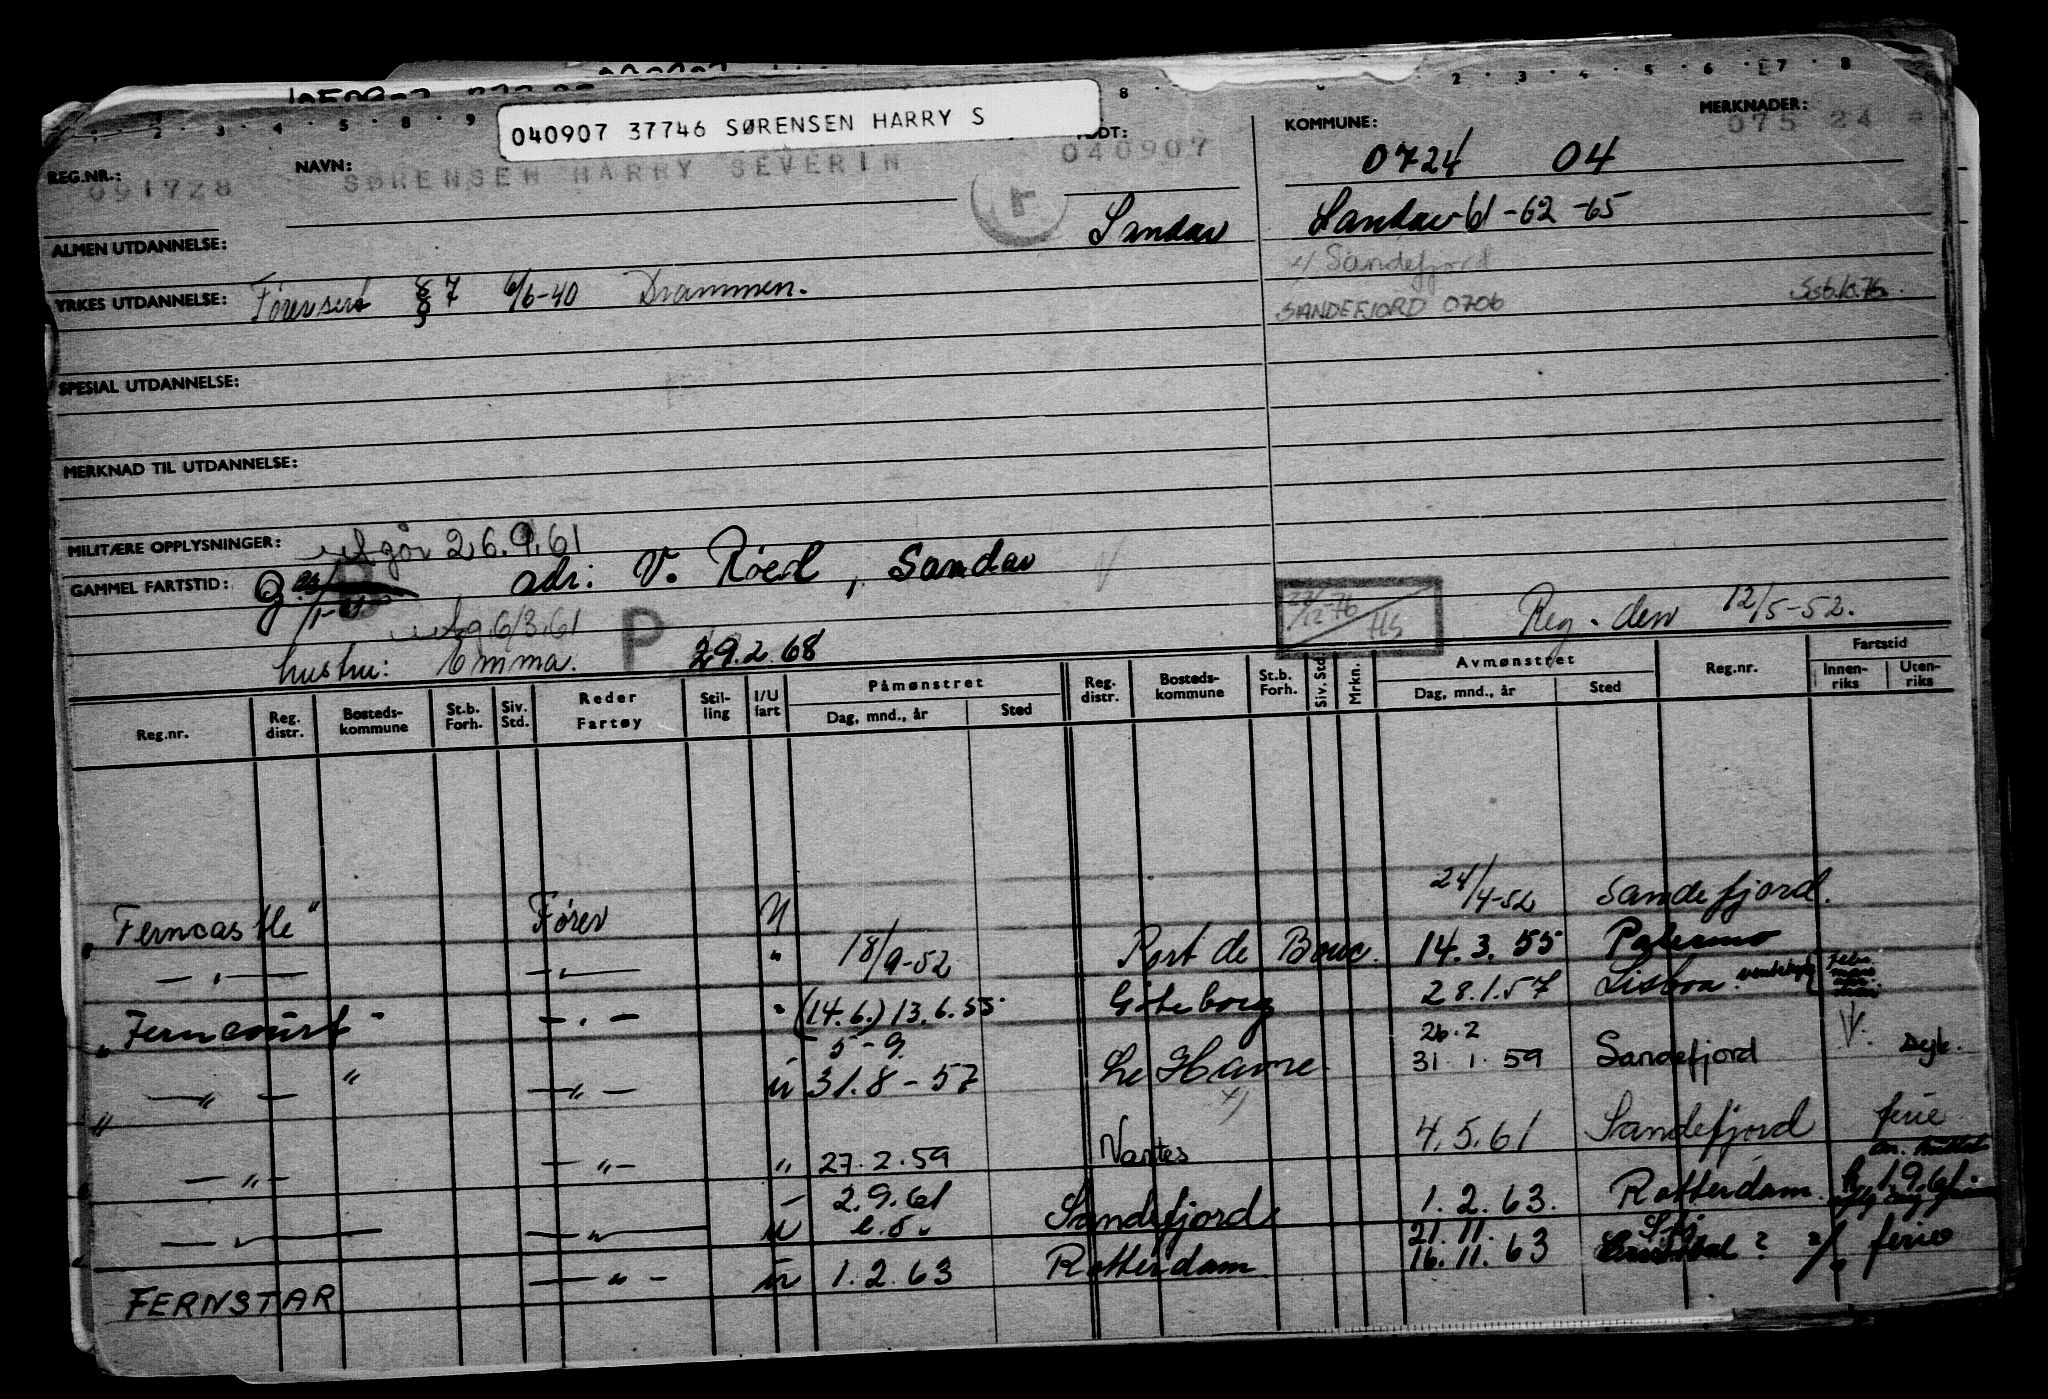 040907 37746 SØRENSEN HARRY S
REG.NR.: 091728
NAVN: SØRENSEN HARRY SEVERIN
FØDT: 040907
Sandar
KOMMUNE: 0724 04
Sandar 61-62-65
Sandefjord
SANDEFJORD 0706
MERKNADER: 075 24
ALMEN UTDANNELSE:
YRKES UTDANNELSE: Førersert § 7 6/6-40 Drammen.
SPESIAL UTDANNELSE:
MERKNAD TIL UTDANNELSE:
MILITÆRE OPPLYSNINGER: 26.9.61
GAMMEL FARTSTID: adr: V. Røed, Sandar
6/3.61
hustru: Emma. P 29.2.68
Reg. den 12/5-52.
Reg.nr. Reg. distr. Bosteds-kommune St.b. Forh. Siv. Std. Reder Fartøy Stil-ling I/U fart Påmønstret Dag, mnd., år Sted Reg. distr. Bosteds-kommune St.b. Forh. Siv. Std. Mrkn. Avmønstret Dag, mnd., år Sted Reg.nr. Fartstid Innen-riks Uten-riks
"Ferncastle" Fører U 24/4-52 Sandefjord.
— " — — " — " 18/9-52 Port de Bouc. 14.3.55 Palermo
"Ferncourt" — " — " (14.6.) 13.6.55 Göteborg 28.1.57 Lisboa.
5-9. 26.2
" — " — " — " — u 31.8-57 Le Havre 31.1.59 Sandefjord
— " — — " — " 27.2.59 Nantes 4.5.61 Sandefjord ferie
— " — — " — u 2.9.61 Sandefjord 1.2.63. Rotterdam 1.9.61
21.11.
FERNSTAR — " — u 1.2.63 Rotterdam 16.11.63 ferie